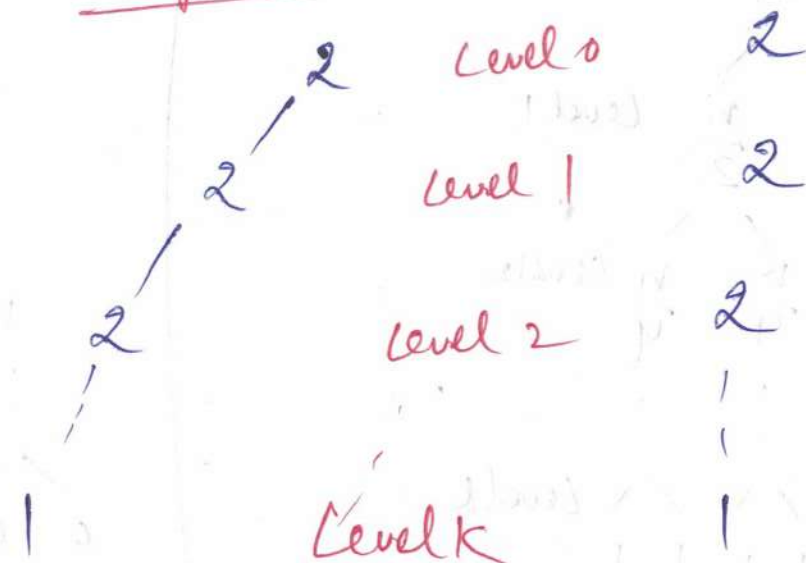 2 Level 0 2
2 Level 1 2
2 Level 2 2
1 Level K 1